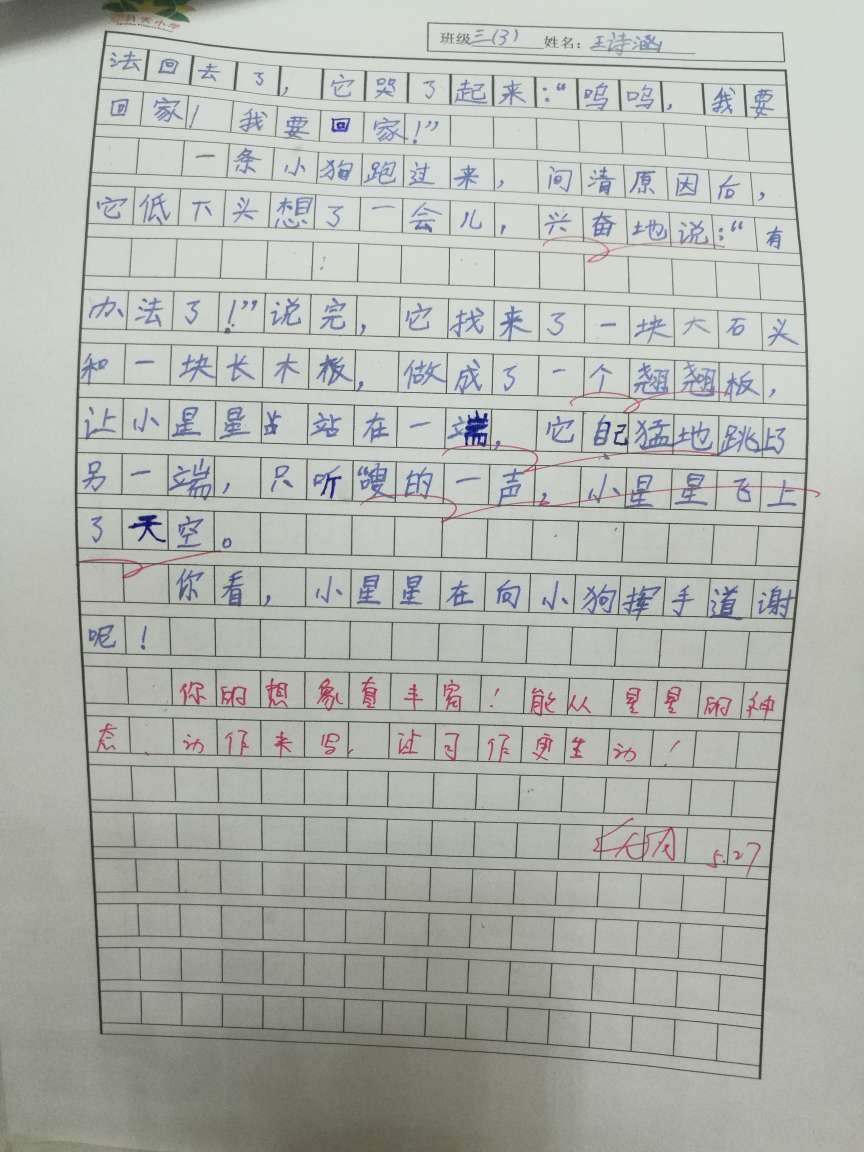 班级三(3) 姓名：王诗涵
法回去了，它哭了起来：“呜呜，我要
回家！我要回家！”
一条小狗跑过来，问清原因后，
它低下头想了一会儿，兴奋地说：“有
办法了！”说完，它找来了一块大石头
和一块长木板，做成了一个翘翘板，
让小星星占站在一端，它自己猛地跳上了
另一端，只听“嗖的一声，小星星飞上
了天空。
你看，小星星在向小狗挥手道谢
呢！
你的想象真丰富！能从星星的神
态、动作来写，让习作更生动！
5.27